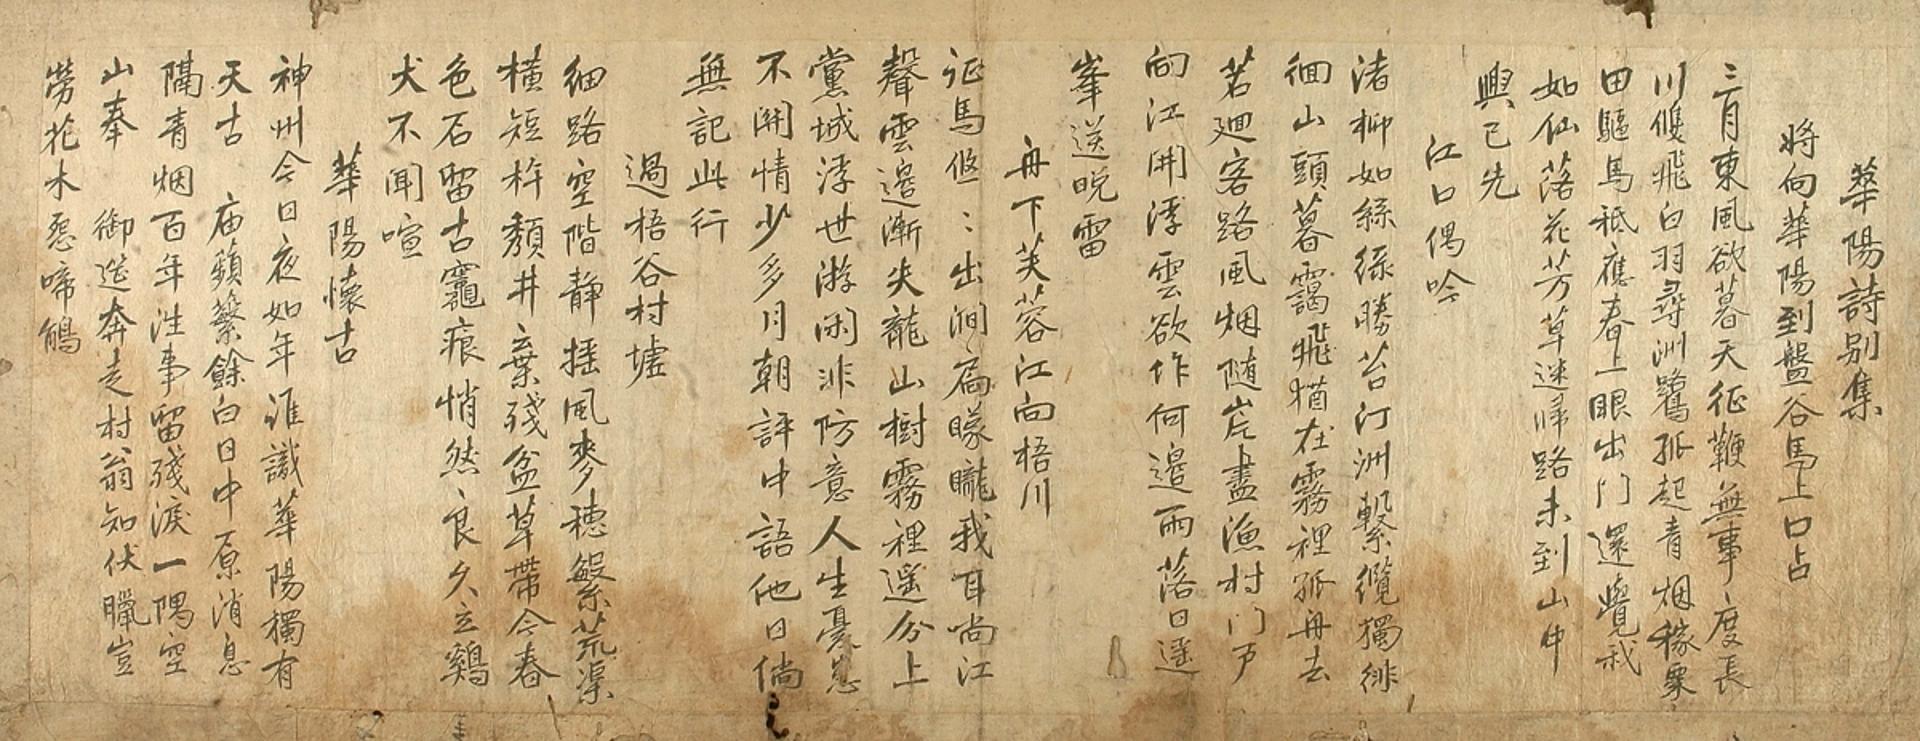 華陽詩别集
將向華陽到盤谷馬上口占
三月東風欲暮天征鞭無事度長
川雙飛白羽尋洲鷺孤起青烟稼
田驅馬秖應春上眼出門還覺我
如仙落花芳草迷歸路未到山中
興已先
江口偶吟
渚柳如絲綠勝苔汀洲繫纜獨徘
徊山頭暮靄飛猶在霧裡孤舟去
若廻客路風烟随岸盡漁村門戶
向江開浮雲欲作何邉雨落日遥
峯送晩雷
舟下芙蓉江向梧川
征馬悠〻出洞扃朦朧我耳尚江
聲雲邉漸失龍山樹霧裡遥分上
黨城浮世游闲非防意人生憂
不開情少多月朝評中語他日倘
無記此行
過梧谷村墟
細路空階静摇風麥穗繁荒渠
橫短杵頹井棄殘盆草帶今春
色石留古竈痕悄然良久立鷄
犬不聞喧
華陽懷古
神州今日夜如年誰識華陽獨有
天古庙蘋蘩餘白日中原消息
隔青烟百年往事留殘淚一隅空
山奉御筵奔走村翁知伏臘豈
勞花木怨啼鵑